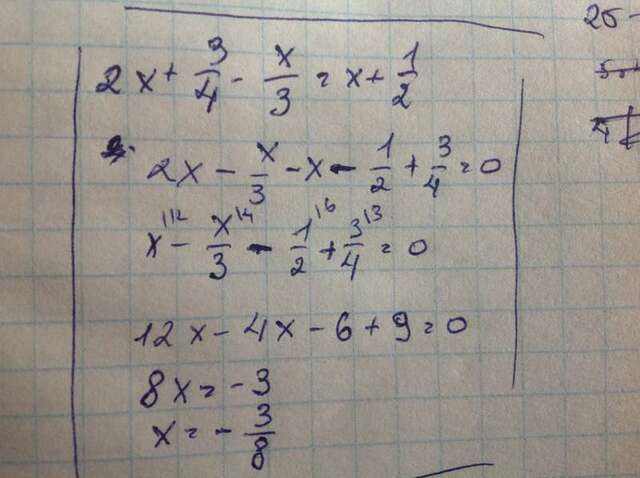 2x + 3/4 - x/3 = x + 1/2
2x - x/3 - x - 1/2 + 3/4 = 0
x|12 - x/3|4 - 1/2|6 + 3/4|3 = 0
12x - 4x - 6 + 9 = 0
8x = -3
x = - 3/8